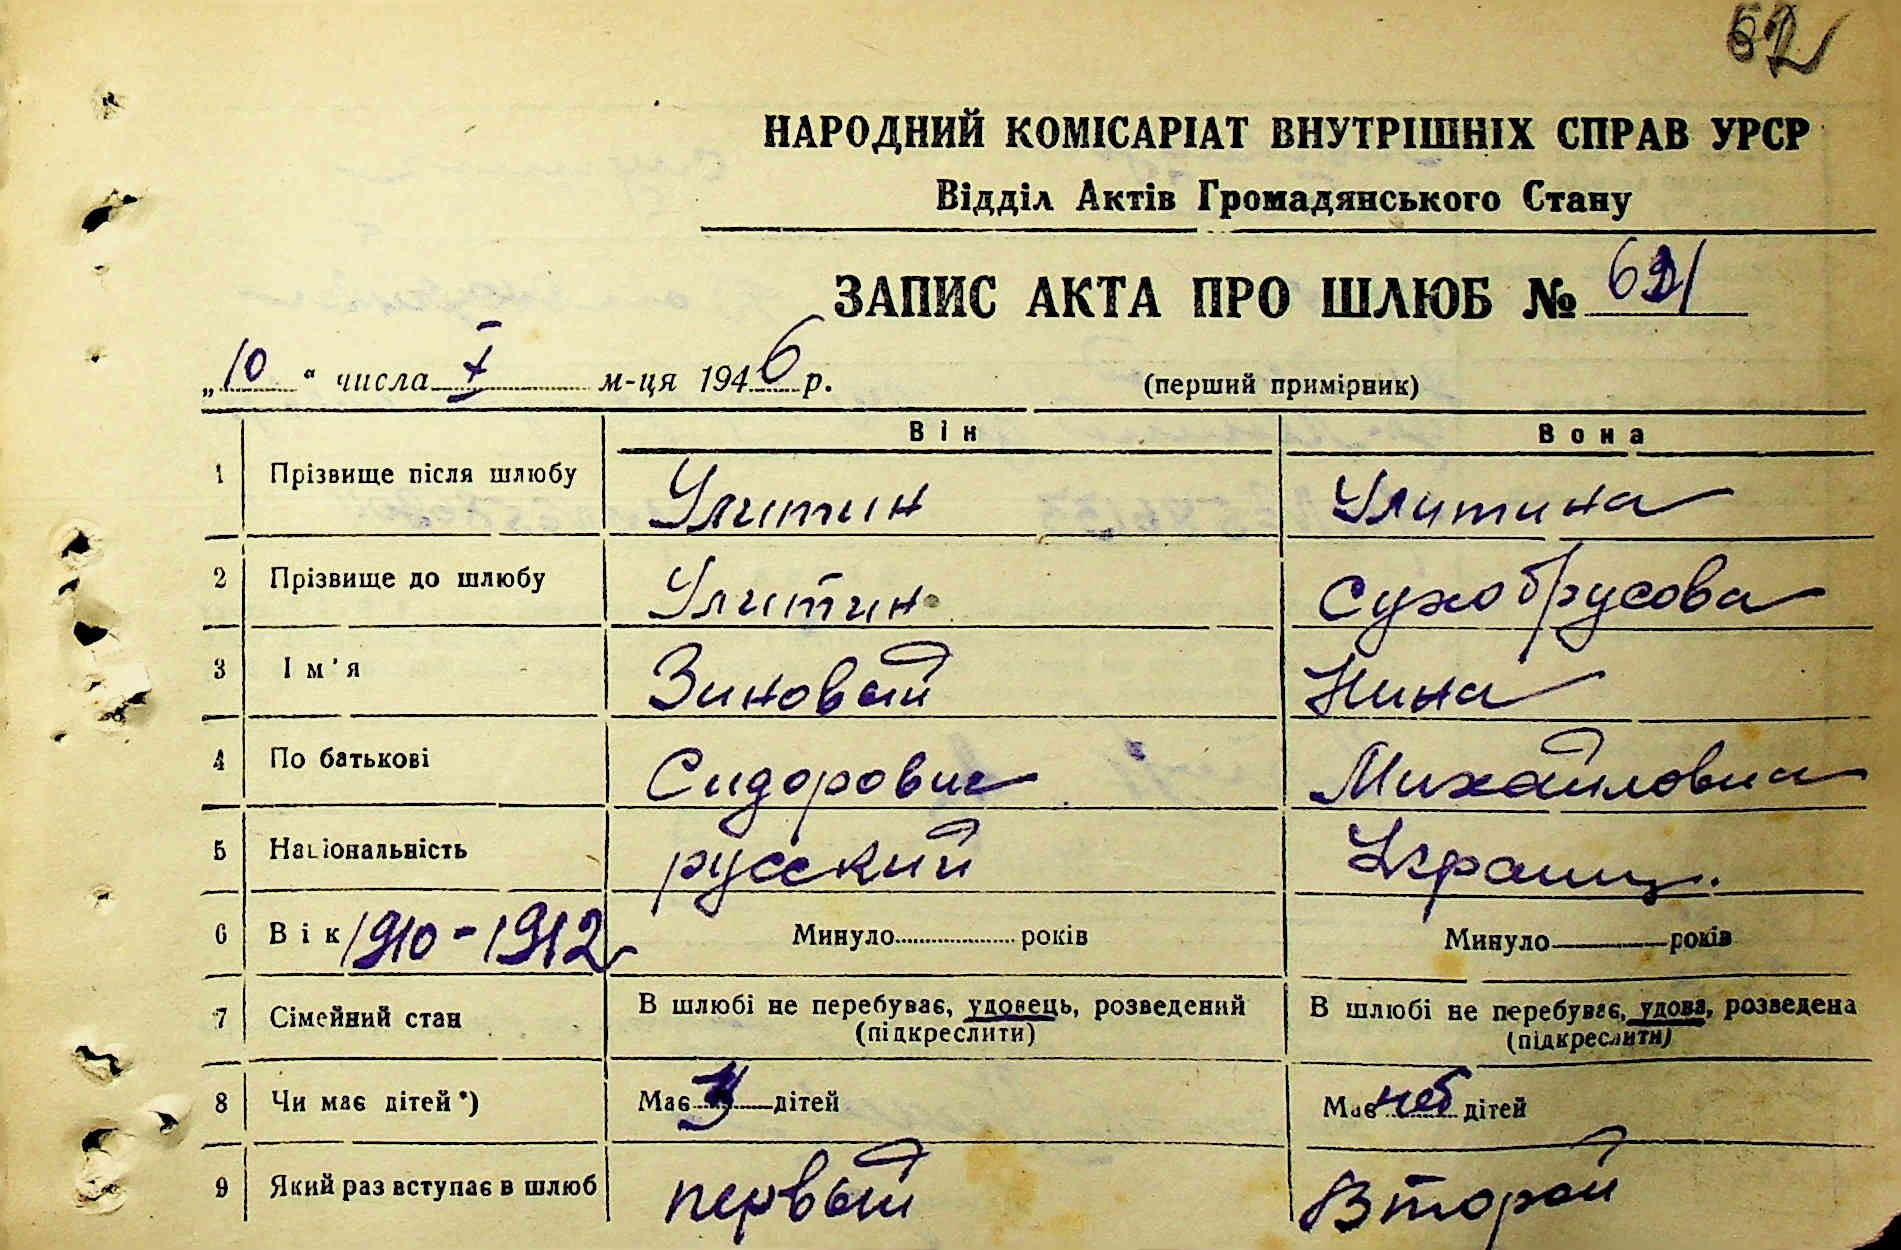 62
НАРОДНИЙ КОМІСАРІАТ ВНУТРІШНІХ СПРАВ УРСР
Відділ Актів Громадянського Стану
ЗАПИС АКТА ПРО ШЛЮБ № 621
„10“ числа X м-ця 1946 р. (перший примірник)
Він Вона
1 Прізвище після шлюбу Улитин Улитина
2 Прізвище до шлюбу Улитин Сухобрусова
3 Ім'я Зиновий Нина
4 По батькові Сидорович Михайловна
5 Національність русский Украин.
6 Вік 1910-1912 Минуло років Минуло років
7 Сімейний стан В шлюбі не перебуває, удовець, розведений В шлюбі не перебуває, удова, розведена
(підкреслити) (підкреслити)
8 Чи має дітей*) Має дітей Має неб дітей
9 Який раз вступає в шлюб первый Второй